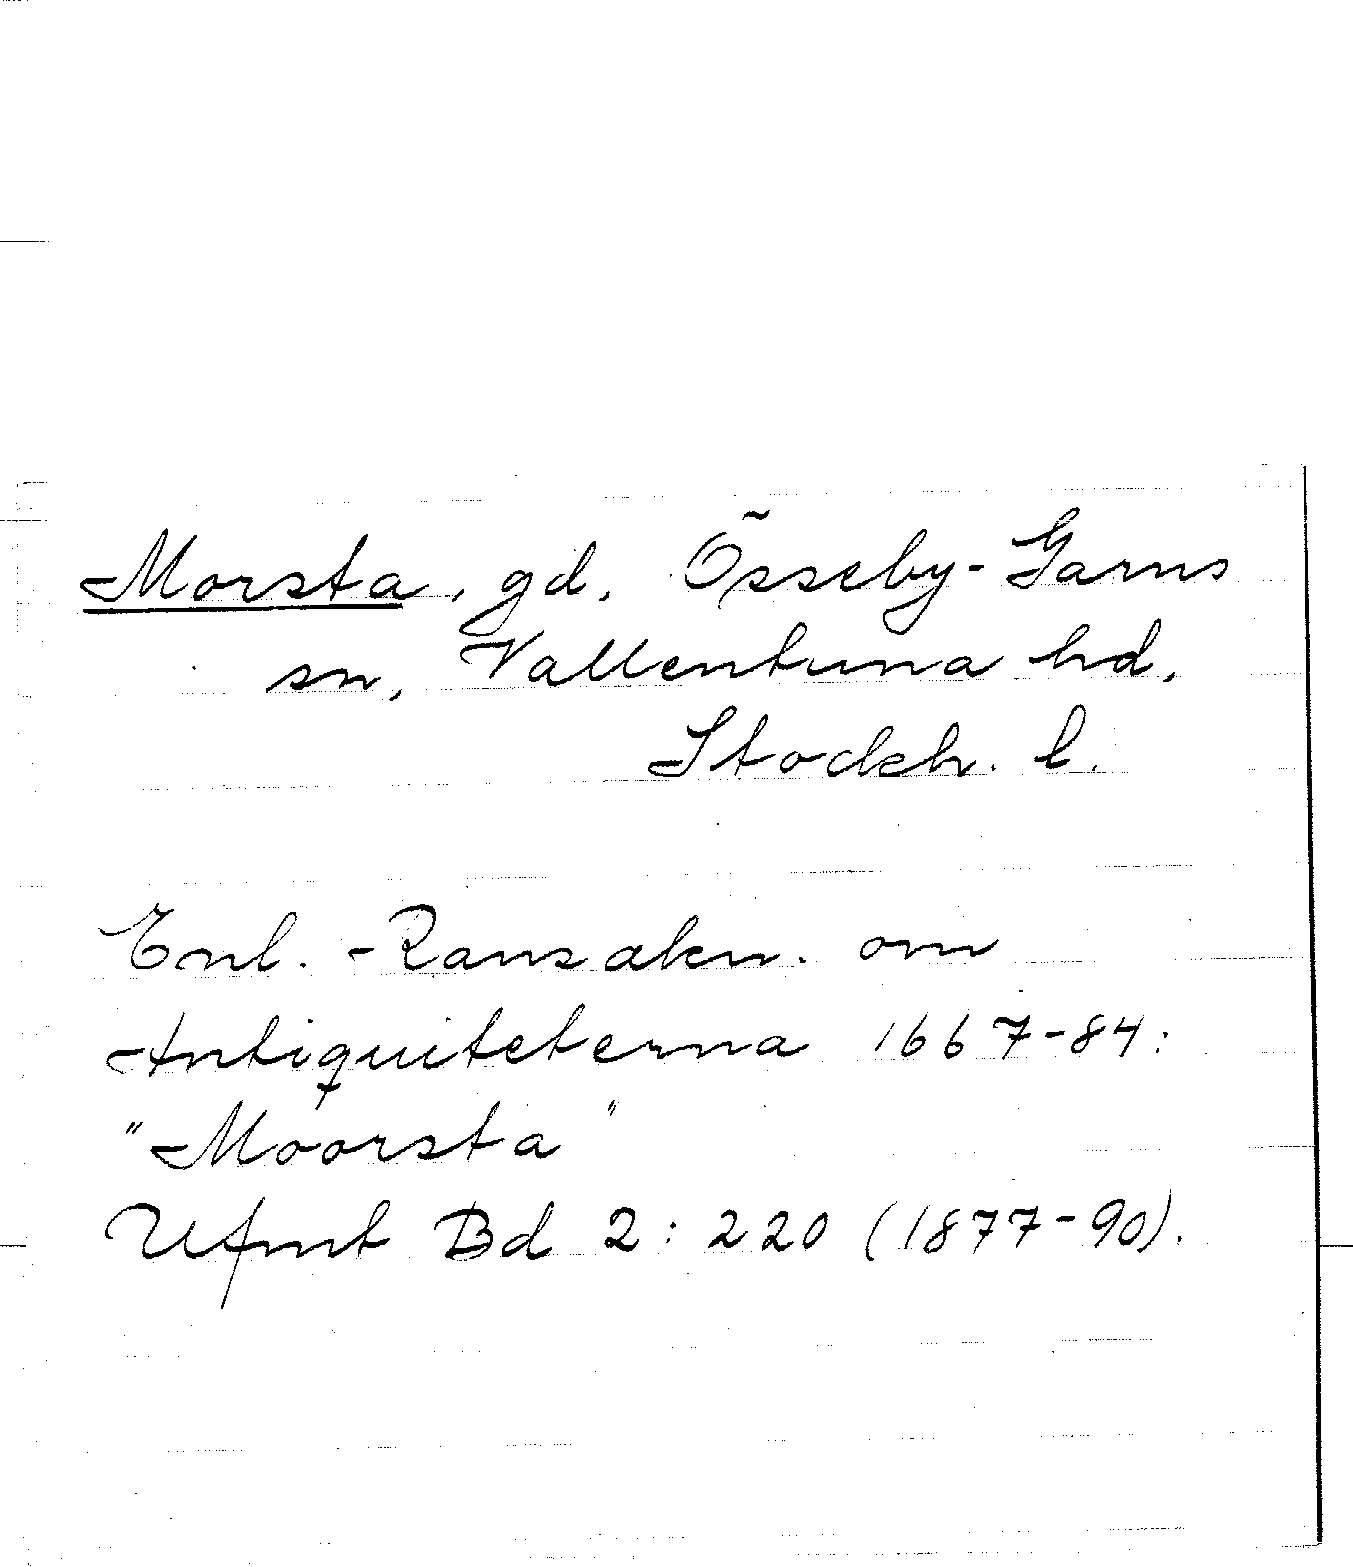 Morsta, gd, Össeby-Garns
sn, Vallentuna hd,
Stockh. l.
Enl. Ransakn. om
Antiquiteterna 1667-84:
"Moorsta"
Ufmt Bd 2: 220 (1877-90).